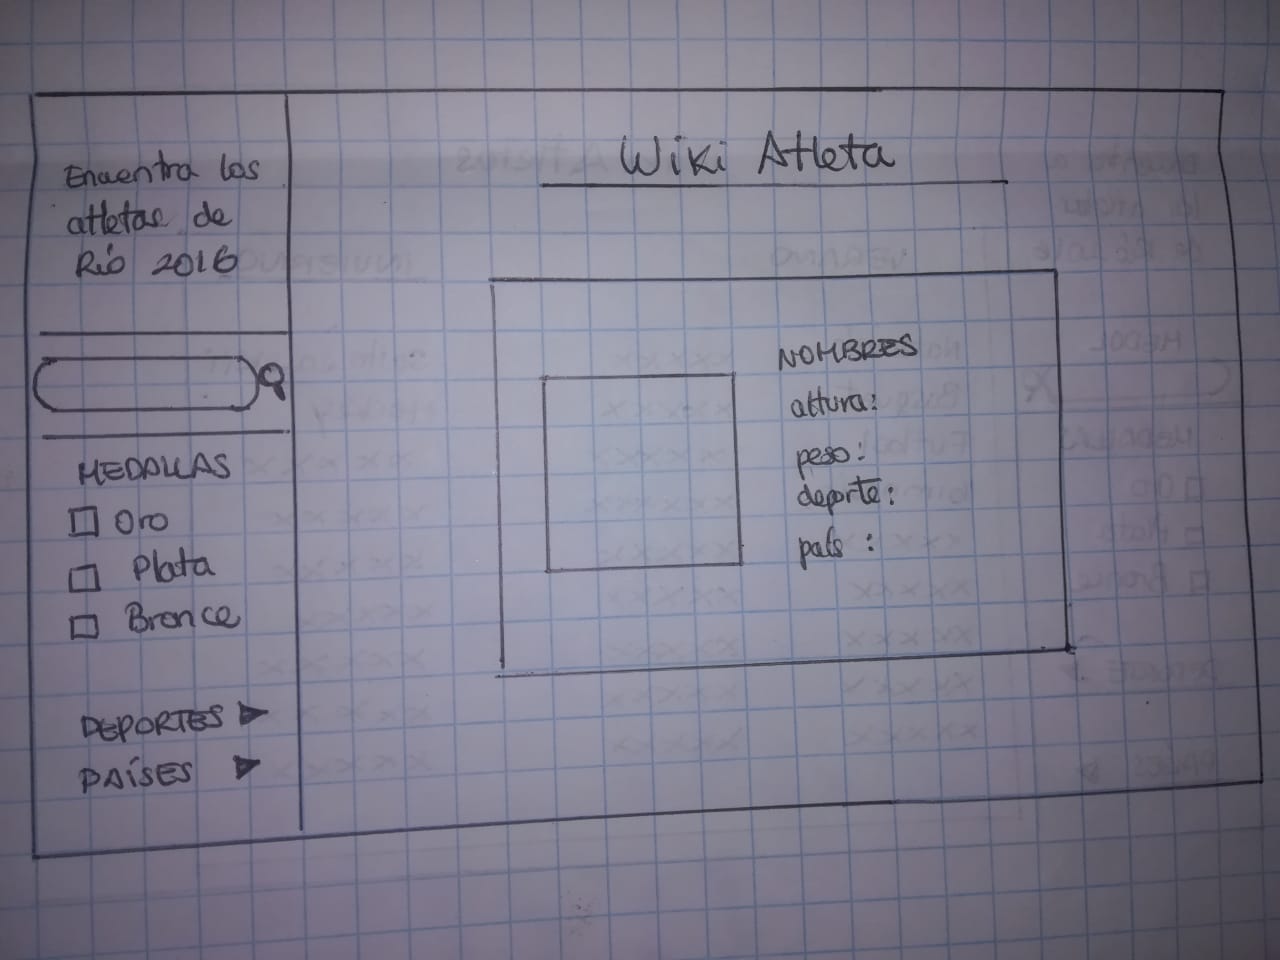 Encuentra los
atletas de
Río 2016
MEDALLAS
Oro
Plata
Bronce
DEPORTES
PAÍSES
Wiki Atleta
NOMBRES
altura:
peso:
deporte:
país :